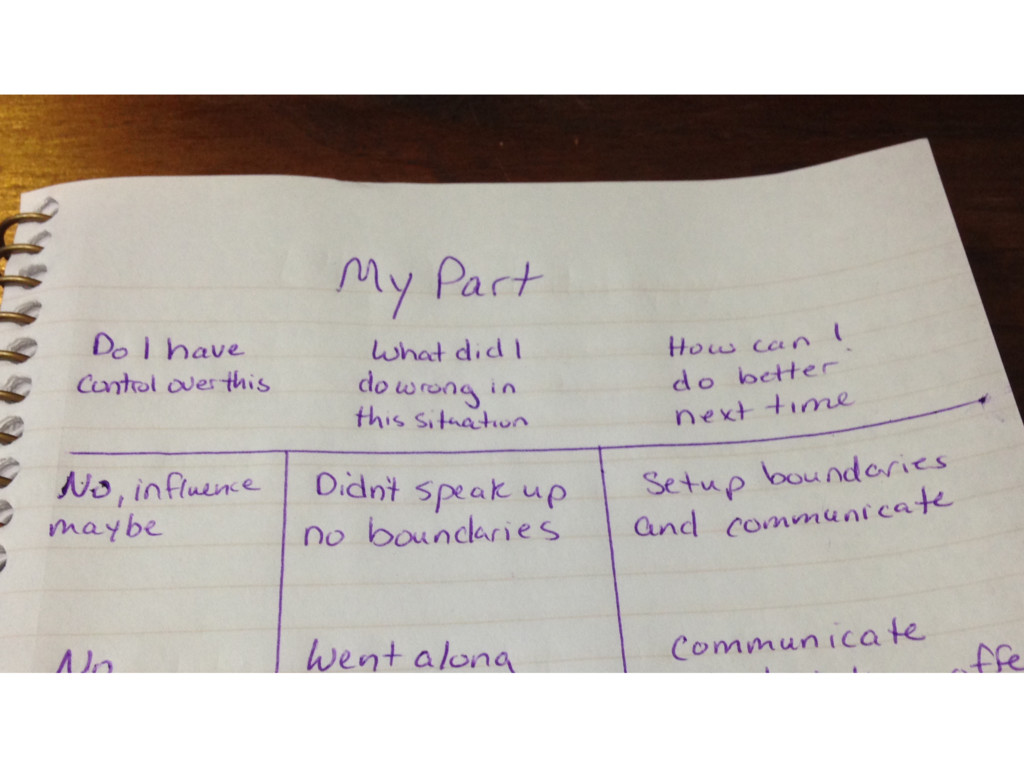 My Part
Do I have
control over this
What did I
do wrong in
this situation
How can I
do better
next time
No, influence
maybe
Didn't speak up
no boundaries
Setup boundaries
and communicate
No
Went along
communicate